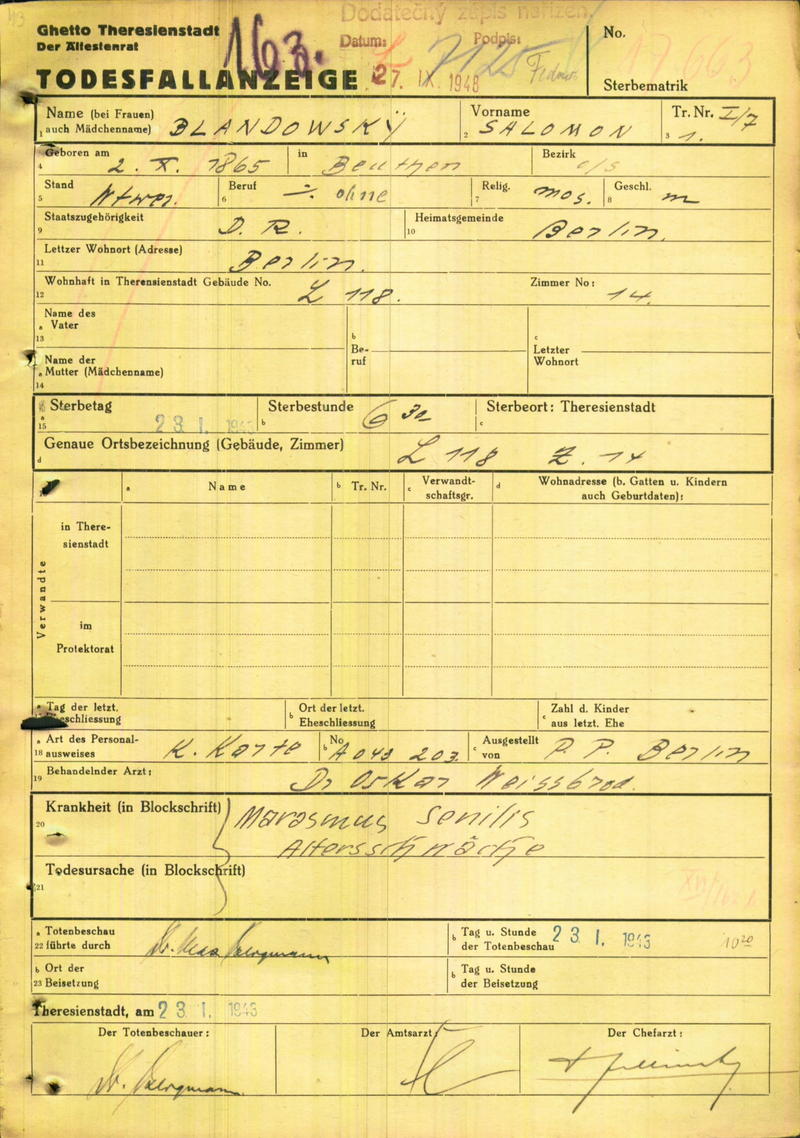 Dodatečný zápis nařízen
Ghetto Theresienstadt
Der Ältestenrat
163.
Datum: Podpis:
27. IX. 1948
No.
TODESFALLANZEIGE
Sterbematrik
Name (bei Frauen) auch Mädchenname) BLANDOWSKY
Vorname SALOMON
Tr. Nr. I/71
1 2 3
Geboren am 2. X. 1865 in Beuthen Bezirk o/s
4
Stand Witwer. Beruf ÷ ohne Relig. mos. Geschl. m
5 6 7 8
Staatszugehörigkeit D. R. Heimatsgemeinde Berlin.
9 10
Lettzer Wohnort (Adresse) Berlin.
11
Wohnhaft in Therensienstadt Gebäude No. L 118. Zimmer No: 14.
12
Name des
a Vater
13
b Be-
ruf
c Letzter
Wohnort
Name der
a Mutter (Mädchenname)
14
a Sterbetag 23 I. 1943 b Sterbestunde 6 30 c Sterbeort: Theresienstadt
15
d Genaue Ortsbezeichnung (Gebäude, Zimmer) L 118 Z. 14
a Name b Tr. Nr. c Verwandt-
schaftsgr. d Wohnadresse (b. Gatten u. Kindern
auch Geburtdaten):
Verwandte
in There-
sienstadt
im
Protektorat
a Tag der letzt.
Eheschliessung
b Ort der letzt.
Eheschliessung
c Zahl d. Kinder
aus letzt. Ehe
a Art des Personal-
18 ausweises K. Karte b No A 043 203. c Ausgestellt
von P. P. Berlin
19 Behandelnder Arzt: Dr Oskar Weissbrod.
Krankheit (in Blockschrift) Marasmus senilis
20
Altersschwäche
Todesursache (in Blockschrift)
21
a Totenbeschau
22 führte durch Dr. Bergmann
b Tag u. Stunde
der Totenbeschau 23 I. 1943 10 20
b Ort der
23 Beisetzung
b Tag u. Stunde
der Beisetzung
Theresienstadt, am 23 I. 1943
Der Totenbeschauer: Der Amtsarzt: Der Chefarzt:
Dr. Bergmann